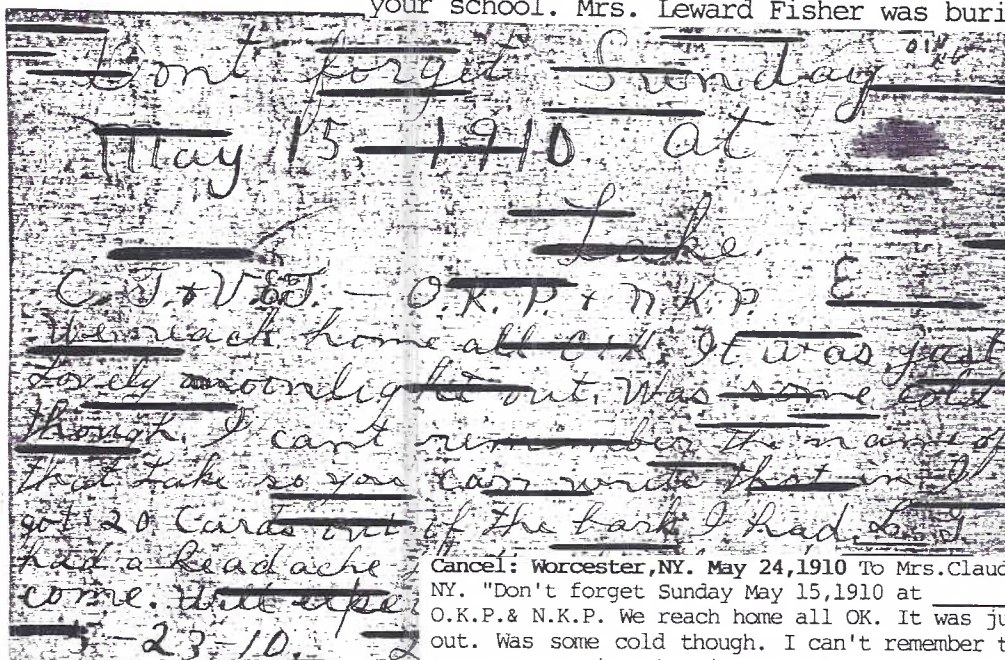 your school. Mrs. Leward Fisher was buri
Dont forget Sunday
May 15, 1910 at
Lake.
C.J.+V.E.J. - O.K.P. + N.K.P.
We reach home all O.K. It was just
Lovely moonlight out. Was some cold
though. I cant remember the name of
that Lake so you can write that in I
got 20 Cards out of the bark I had
had a headache
come. Will
-23-10.
Cancel: Worcester,NY. May 24,1910 To Mrs.Claud
NY. "Don't forget Sunday May 15,1910 at
O.K.P.& N.K.P. We reach home all OK. It was ju
out. Was some cold though. I can't remember t